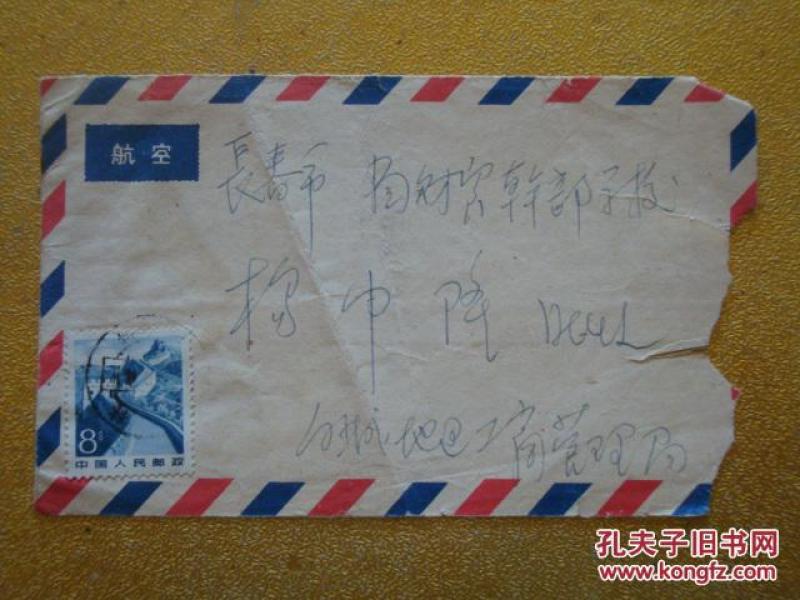 航空
長春市 財贸幹部学校
杨中隆
白城地区工商管理局
8分
中国人民邮政
孔夫子旧书网
www.kongfz.com